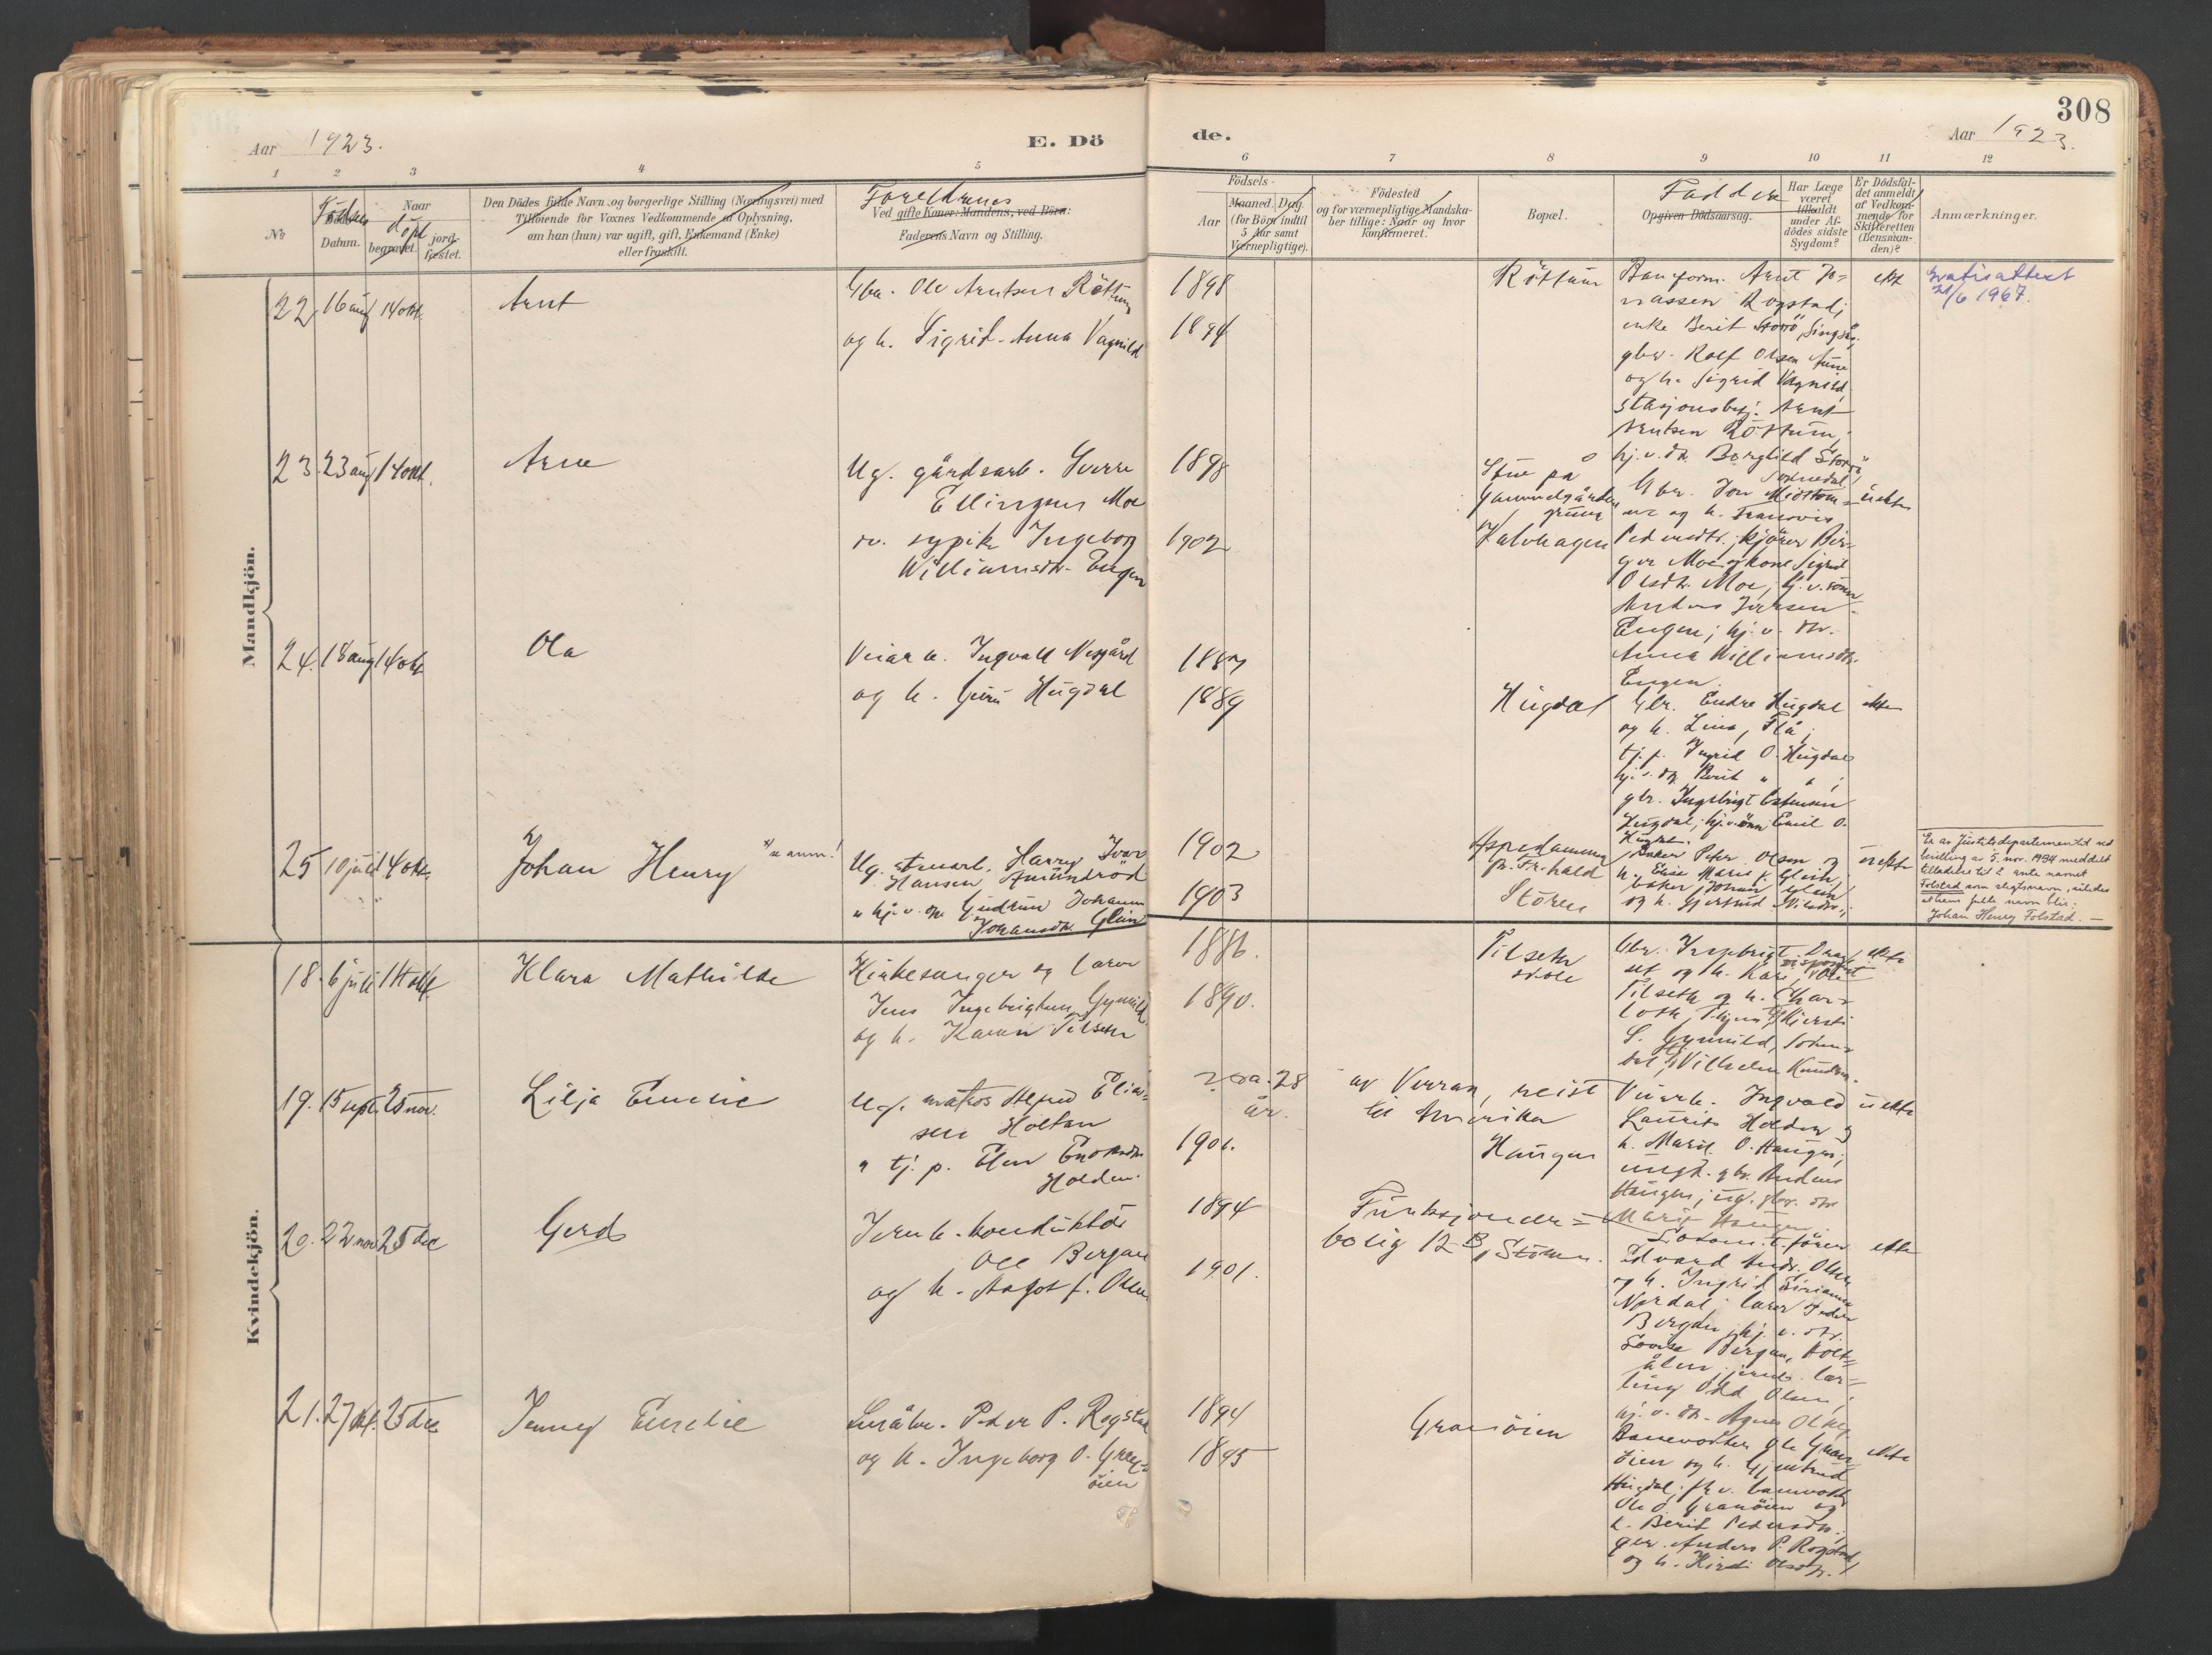 308
Aar 1923.
E. Dö
de.
Aar 1923.
1 2 3 4 5 6 7 8 9 10 11 12
No
Fødsels
Datum.
Naar
døpt
begravet.
jord-
fæstet.
Den Dödes fulde Navn og borgerlige Stilling (Næringsvei) med
Tilföiende for Voxnes Vedkommende af Oplysning,
om han (hun) var ugift, gift, Enkemand (Enke)
eller fraskilt.
Foreldrenes
Ved gifte Koner: Mandens, ved Börn:
Faderens Navn og Stilling.
Födsels-
Aar
Maaned. Dag.
(for Börn indtil
5 Aar samt
Værnepligtige).
Födested
og for værnepligtige Mandska-
ber tillige: Naar og hvor
konfirmeret.
Bopæl.
Faddere
Opgiven Dödsaarsag.
Har Læge
været
tilkaldt
under Af-
dödes sidste
Sygdom?
Er Dödsfal-
det anmeldt
af Vedkom-
mende for
Skifteretten
(Lensman-
den)?
Anmærkninger.
Mandkjön.
22. 16 aug 14 okt. Arnt
Gbr. Ole Arntsen Röttum
og h. Sigrid Anna Vagnild
1898
1894
Röttum
Baneform. Arnt Jo=
nassen Rogstad;
enke Berit Storrö, Singsås;
gbr. Rolf Olsen Aune
og h. Sigrid Vagnild
stasjonsbetj. Arnt
Arntsen Röttum;
hj.v.dtr. Borghild Storrö,
ekte
Gratisattest
21/6 1967.
23. 23 aug 14 okt. Arne
Ug. gårdsarb. Sverre
Ellingsen Moe
og sypike Ingeborg
Williamsdtr. Engen
1898
1902
Stue på
Gammelgården
grunn
Kalvhagen
Soknedal
Gbr. Jon Midttöm=
me og h.
Pedersdtr.; kjörer Bir=
ger Moe og kone Sigrid
Olsdtr. Moe; hj.v. sönn
Anders Iversen
Engen; hj.v. dtr.
Anna Williamsdtr.
Engen.
uekte
24. 18 aug 14 okt. Ola
Veiarb. Ingvald Nesgård
og h. Guru Hugdal
1887
1889
Hugdal
Gbr. Endre Hugdal
og h. Lina, Flå;
tj.p. Ingrid O. Hugdal
hj.v. dtr. Berit " " ;
gbr. Ingebrigt Estensen
Hugdal; hj.v. sönn Emil O.
Hugdal.
ekte
25 10 juli 14 okt. Johan Henry
*) se anm.!
Ug. stenarb. Harry Ivar
Hansen Amundröd
" hj.v. dtr. Gudrun Johanne
Johansdtr. Glein
1902
1903
Aspedammen
pr. Fr.hald
Stören
Baker Peter Olsen og
h. Elise Marie f. Glein;
baker Johan Glein
og h. Gjertrud
uekte
Er av Justitsdepartementet ved
bevilling av 5. nov. 1934 meddelt
tilladelse til å anta navnet
Folstad som slegtsnavn, således
at hans fulle navn blir:
Johan Henry Folstad. —
Kvindekjön.
18. 6 juli 14 okt. Klara Mathilde
Kirkesanger og lærer
Jens Ingebrigtsen Gynnild
og h. Karen Tilseth
1886.
1890.
Tilseth
skole
Gbr. Ingebrigt
set og h. Kari; Ole
Tilseth og h. Char=
lotte;
S. Gynnild, Sokne=
dal; Vilhelm Knudsen.
ekte
19. 15 sept. 25 nov. Lilja Emelie
Ug. matros Alfred Elias=
sen Holtan
" tj.p. Elen
Holden.
ca. 28
år.
1901.
av Verran, reist
til Amerika
Haugen
Veiarb. Ingvald
Laurits Holden og
h. Marit O. Haugen;
ungk. gbr. Anders
Haugen; ug. gbr. dtr.
Marit Haugen.
uekte
20. 22 nov 25 dec Gerd
Jernb.konduktör
Ole Bergan
og h. Aagot f. Olsen
1894
1901.
Funksjonær=
bolig 12 B, Stören.
Lokomot.förer
Edvard Andr. Olsen
og h. Ingrid
Nordal; lærer Peder
Bergan; hj.v. dtr.
Lovise Bergan, Holt=
ålen; jernb. lær=
ling Odd Olsen;
hj.v. dtr. Agnes Olsen
ekte
21. 27 okt. 25 dec Jenny Emelie
Småbr. Peder P. Rogstad
og h. Ingeborg O. Gran=
öien
1894
1895
Granöien
Banevokter Ole Gran=
öien og h. Gjertrud
Hugdal; fhv. banevokter
Ole O. Granöien og
h. Berit Pedersdtr.;
gbr. Anders P. Rogstad
og h. Kirsti Olsdtr.
ekte